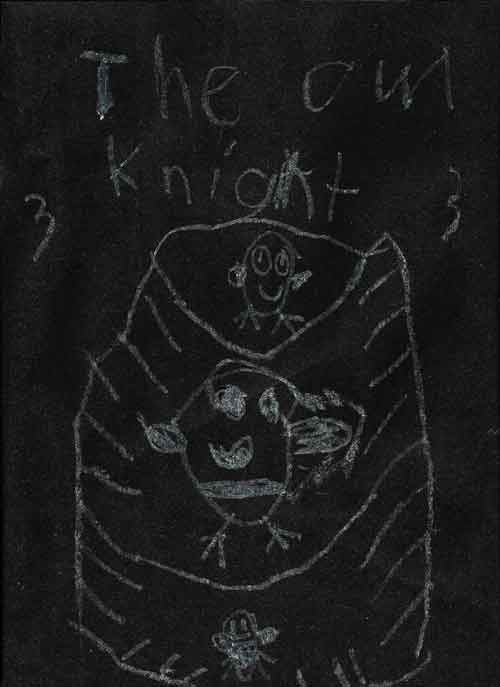 The owl
knight
3 3